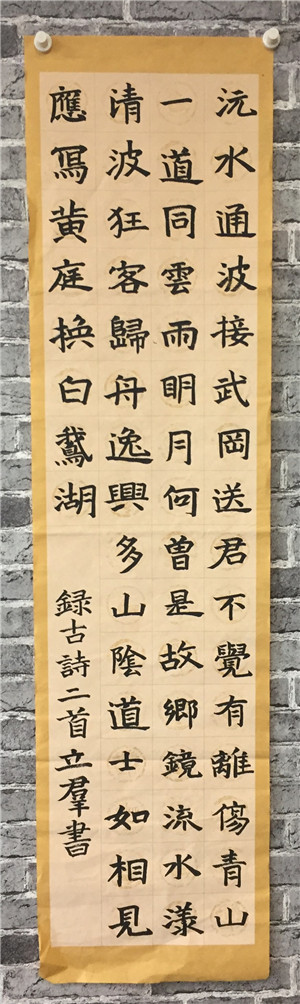 沅水通波接武岡送君不覺有離傷青山
一道同雲雨明月何曾是故鄉鏡流水漾
清波狂客歸舟逸興多山陰道士如相見
應寫黄庭換白鵞湖
録古詩二首立羣書